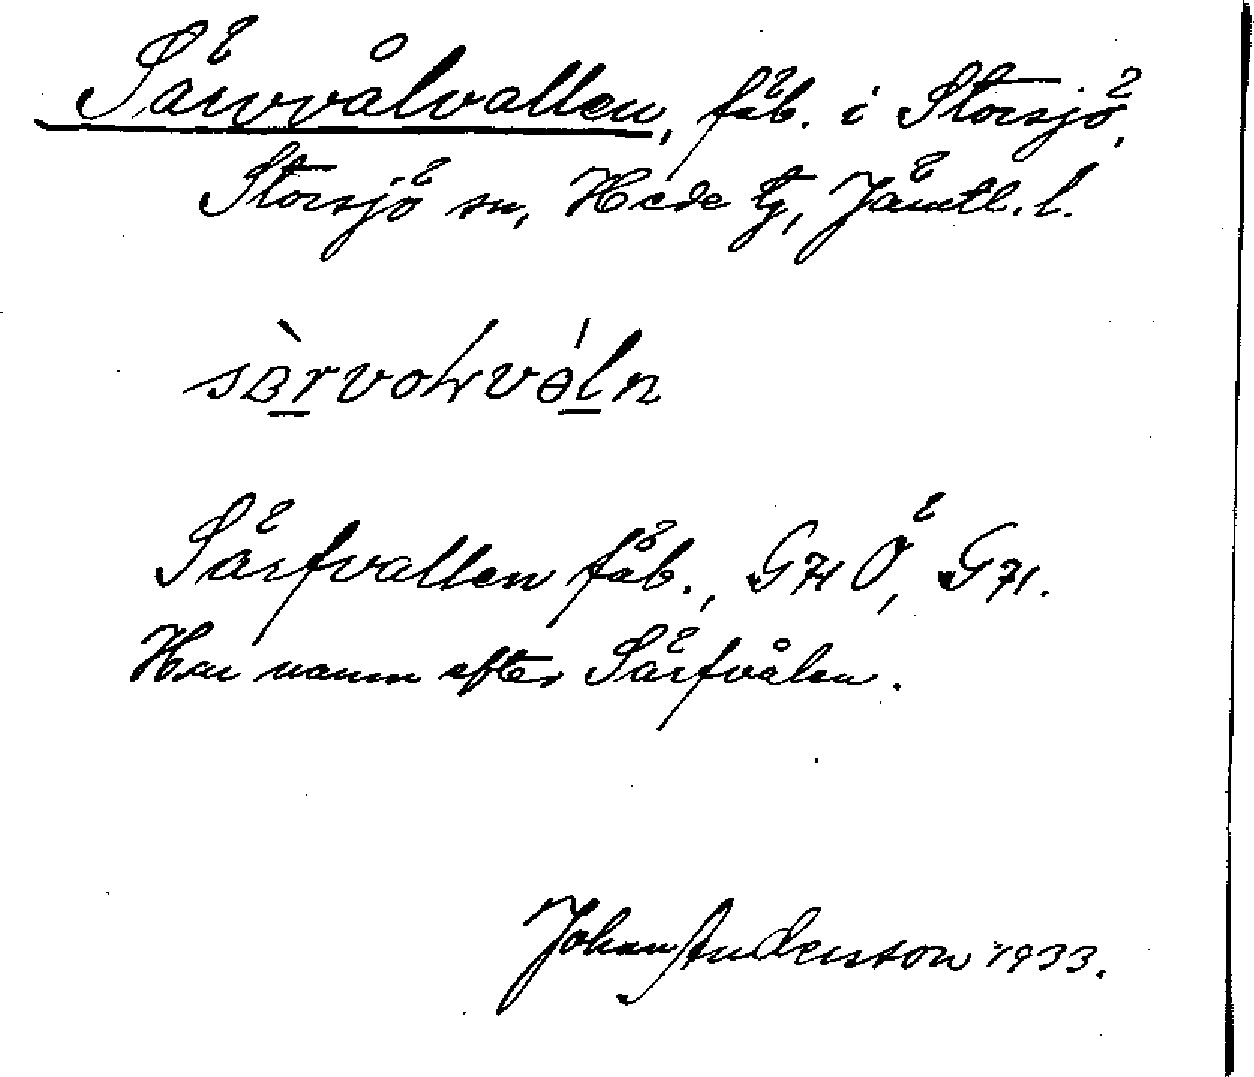 Särvvålvallen, fäb. i Storsjö,
Storsjö sn, Hede tg, Jämtl. l.
Särfvallen fäb., GK Ö, GK.
Har namn efter Särfvålen.
Johan Anderson 1933.